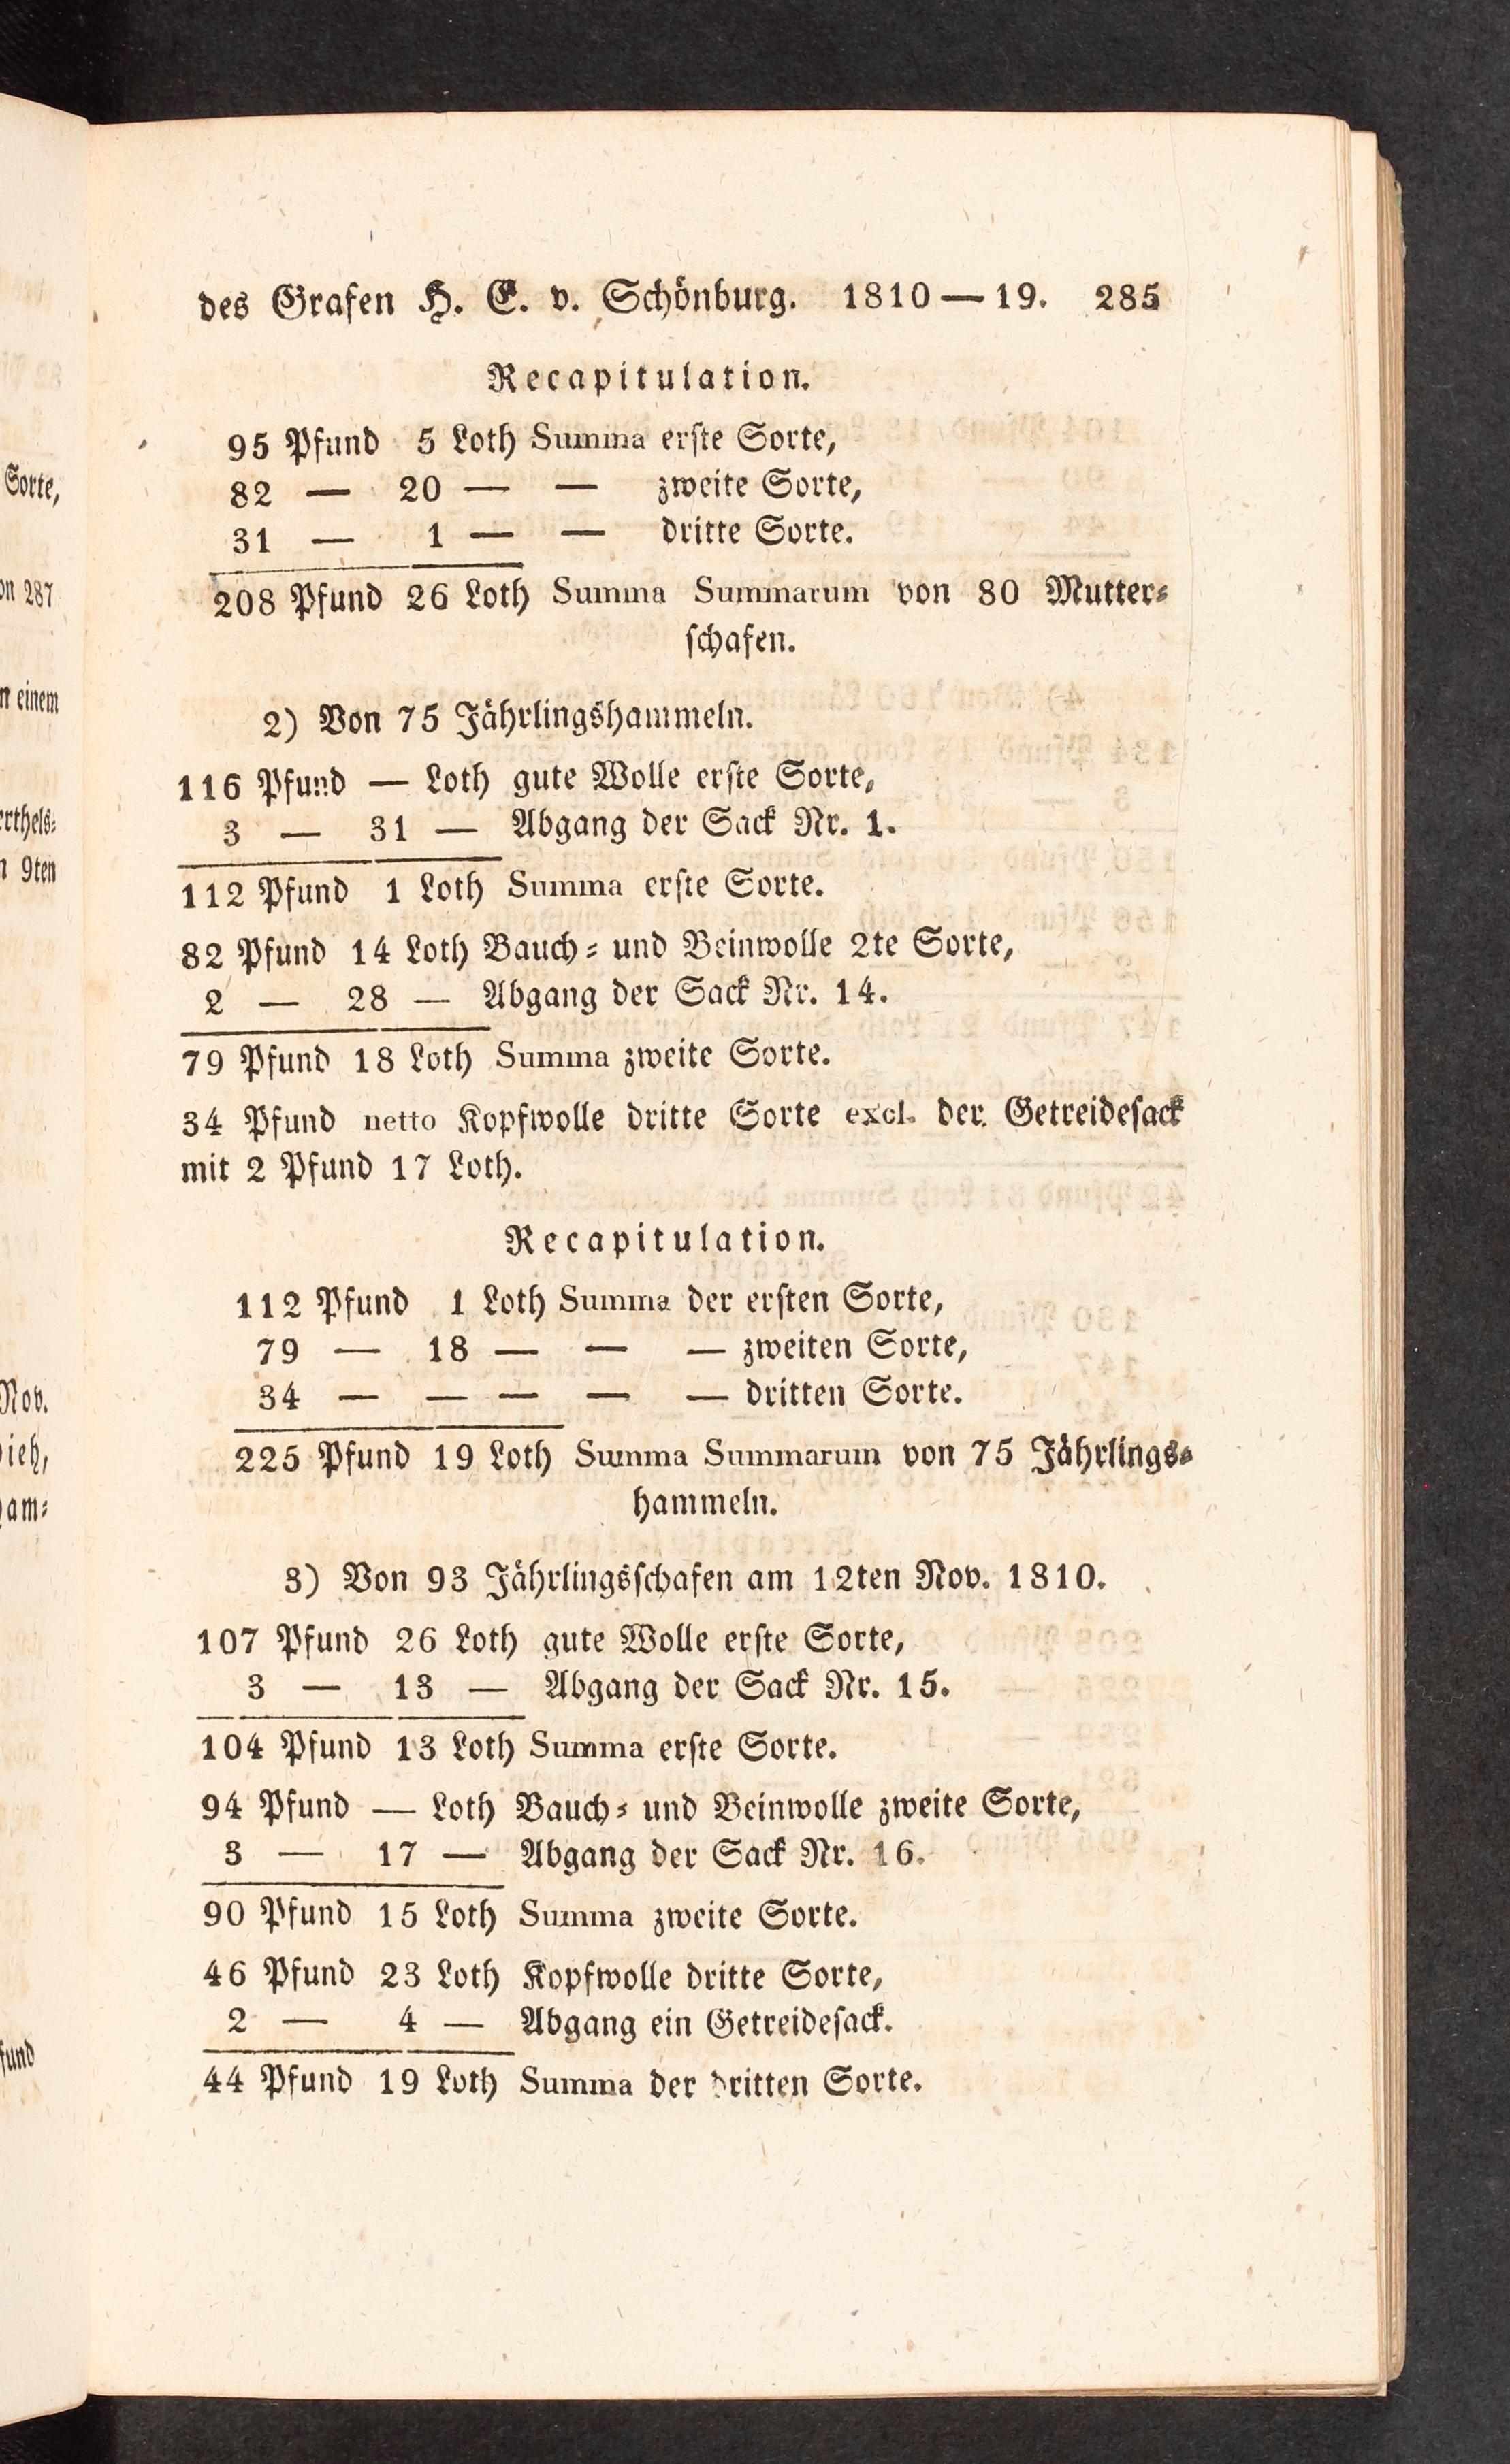 des Grafen H. E. v. Schönburg. 1810—19. 285
Recapitulation.
95 Pfund 5 Loth Summa erste Sorte,
82 — 20 — — zweite Sorte,
31 — 1 — — dritte Sorte.
208 Pfund 26 Loth Summa Summarum von 80 Mutter-
schafen.
2) Von 75 Jährlingshammeln.
116 Pfund — Loth gute Wolle erste Sorte,
3 — 31 — Abgang der Sack Nr. 1.
112 Pfund 1 Loth Summa erste Sorte.
82 Pfund 14 Loth Bauch- und Beinwolle 2te Sorte,
2 — 28 — Abgang der Sack Nr. 14.
79 Pfund 18 Loth Summa zweite Sorte.
34 Pfund netto Kopfwolle dritte Sorte excl. der Getreidesack
mit 2 Pfund 17 Loth.
Recapitulation.
112 Pfund 1 Loth Summa der ersten Sorte,
79 — 18 — — — zweiten Sorte,
34 — — — — — dritten Sorte.
225 Pfund 19 Loth Summa Summarum von 75 Jährlings-
hammeln.
3) Von 93 Jährlingsschafen am 12ten Nov. 1810.
107 Pfund 26 Loth gute Wolle erste Sorte,
3 — 13 — Abgang der Sack Nr. 15.
104 Pfund 13 Loth Summa erste Sorte.
94 Pfund — Loth Bauch- und Beinwolle zweite Sorte,
3 — 17 — Abgang der Sack Nr. 16.
90 Pfund 15 Loth Summa zweite Sorte.
46 Pfund 23 Loth Kopfwolle dritte Sorte,
2 — 4 — Abgang ein Getreidesack.
44 Pfund 19 Loth Summa der dritten Sorte.
Sorte,
287
einem
9ten
Nov.